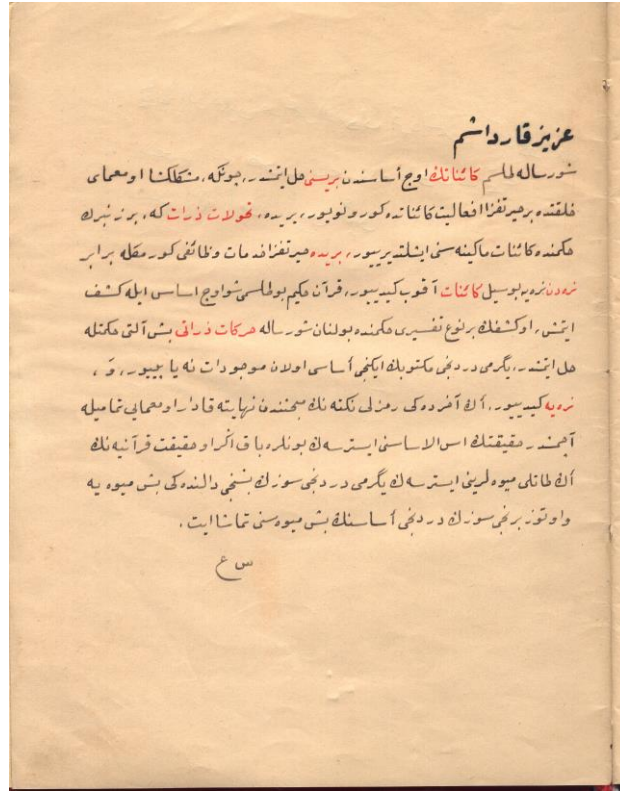 عزیز قارداشم
شو رساله طلسم كائناتك اوچ أساسندن بريسنى حل ايتمشدر، چونكه، مشكلكشا او معماى
خلقتده بر حيرتفزا فعاليت كائناتده كورونويور، بريده، تحولات ذرات كه، بر زنبرك
حكمنده كائنات ماكينه سنى ايشلتديرييور، بريده حيرتفزا خدمات وظائفى كورمكله برابر
نره دن نره يه بو سيل كائنات آقوب كيدييور، قرآن حكيم بو طلسمى شو اوچ اساس ايله كشف
ايتمش، او كشفك بر نوع تفسيرى حكمنده بولنان شو رساله حركات ذراتى بش آلتى حكمتله
حل ايتمشدر، يگرمى دردنجى مكتوبك ايكنجى أساسى اولان موجودات نه يا پييور، وَ،
نره يه كيدييور، أڭ آخرده كى رمزلى نكته نك مبحثندن نهايته قادار او معمايى تماميله
آچمشدر حقيقتك اس الاساسنى ايسترسه ڭ بونلره باق اگر او حقيقت قرآنيه نك
أڭ طاتلى ميوه لرينى ايسترسه ڭ يگرمى دردنجى سوزڭ بشنجى دالنده كى بش ميوه يه
و اوتوز برنجى سوزڭ دردنجى أساسنڭ بش ميوه سنى تماشا ايت.
س ع